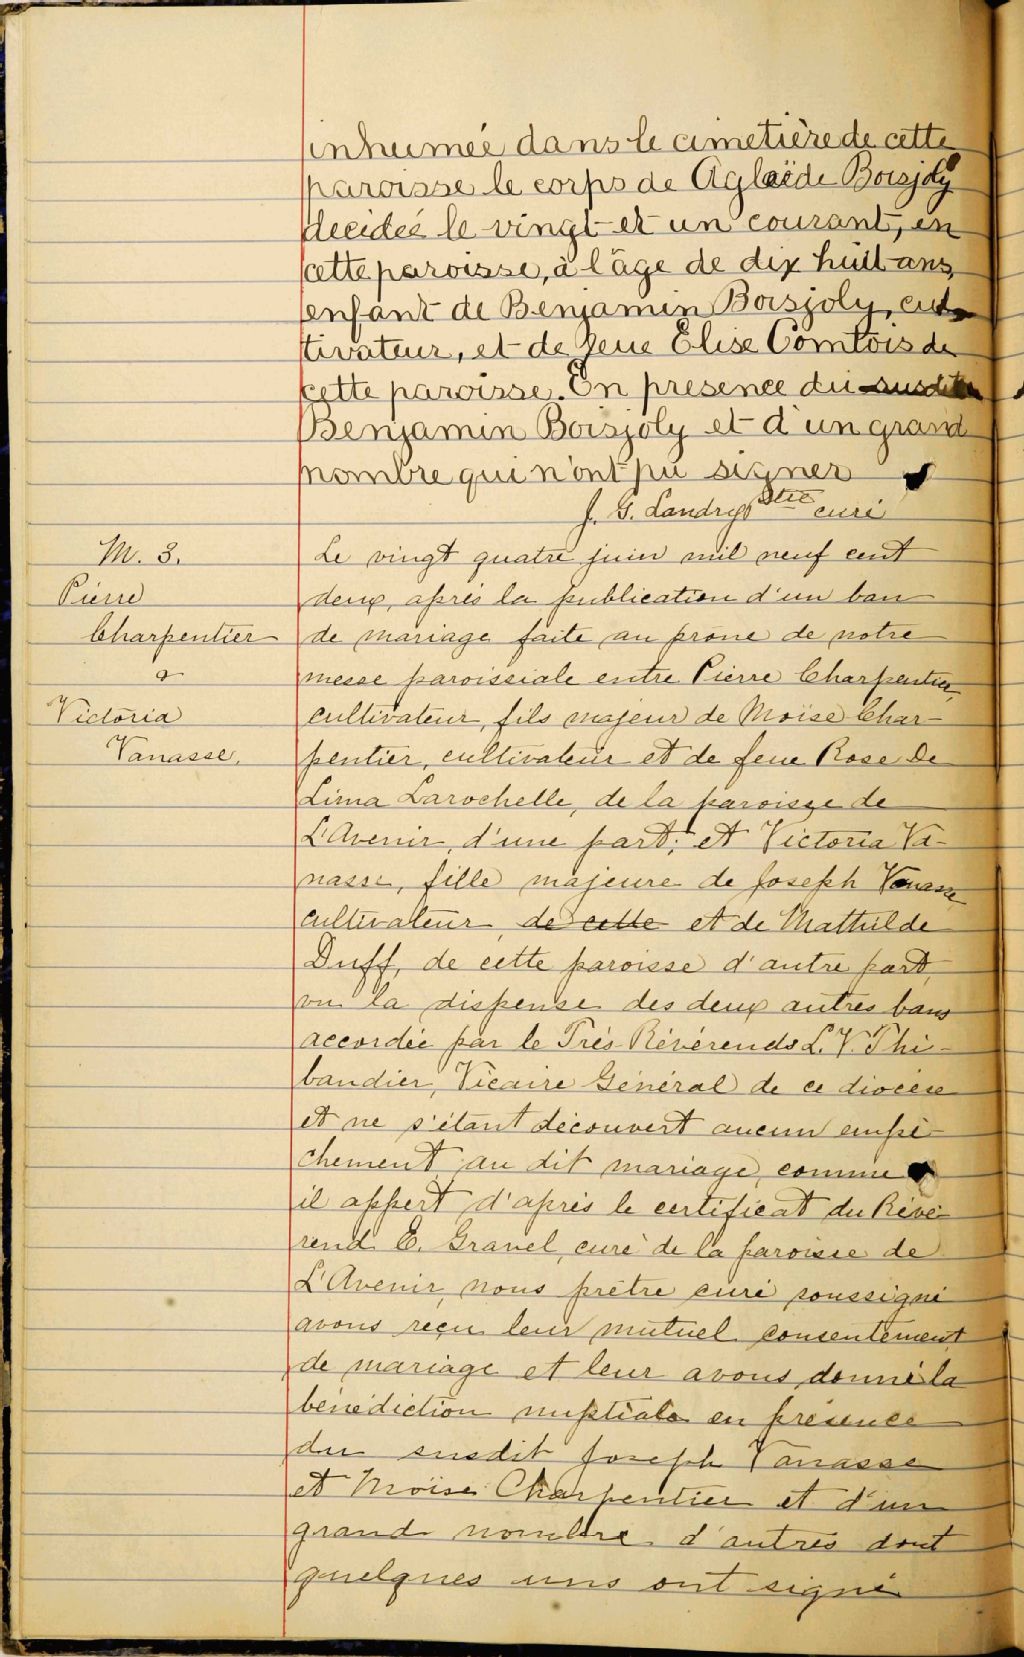 inhumée dans le cimetière de cette
paroisse le corps de Aglaëde Boisjoly
décidée le vingt et un courant, en
cette paroisse, à l'âge de dix huit ans,
enfant de Benjamin Boisjoly, cul-
tivateur, et de feue Elise Comtois de
cette paroisse. En présence du susdit
Benjamin Boisjoly et d'un grand
nombre qui n'ont pu signer
J. G. Landry ptre curé
M. 3.
Pierre
Charpentier
&
Victoria
Vanasse.
Le vingt quatre juin mil neuf cent
deux, après la publication d'un ban
de mariage faite au prône de notre
messe paroissiale entre Pierre Charpentier,
cultivateur, fils majeur de Moïse Char-
pentier, cultivateur et de feue Rose De
Lima Larochelle, de la paroisse de
L'Avenir, d'une part; et Victoria Va-
nasse, fille majeure de Joseph Vanasse
cultivateur, de cette et de Mathilde
Duff, de cette paroisse d'autre part,
vu la dispense des deux autres bans
accordée par le Très Révérends L. V. Thi-
baudier, Vicaire Général de ce diocèse
et ne s'étant découvert aucun empê-
chement au dit mariage, comme
il appert d'après le certificat du Révé-
rend E. Gravel, curé de la paroisse de
L'Avenir, nous prêtre curé soussigné
avons reçu leur mutuel consentement
de mariage et leur avons donné la
bénédiction nuptiale en présence
du susdit Joseph Vanasse
et Moïse Charpentier et d'un
grand nombre d'autres dont
quelques uns ont signé